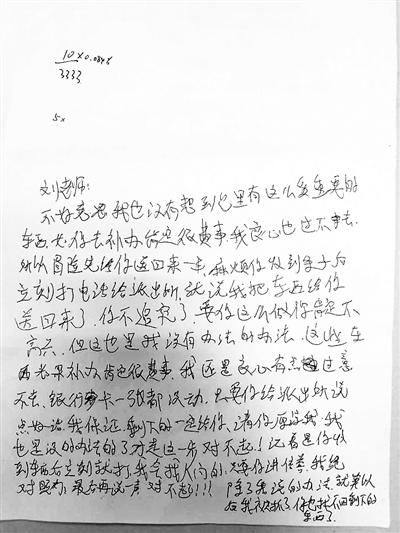 10×0.084
3333
5×
刘老师:
不好意思我也没有想到包里有这么多重要的
东西 你去补办肯定很费事,我良心也过不去,
所以冒险先给你送回来一点,麻烦你收到东西后
立刻打电话给派出所,就说我把东西给你
送回来了,你不追究了,要你这么做你肯定不
高兴,但这也是我没有办法的办法,这些东
西 补办肯也很费事,我还是良心有点过意
不去,银行卡一张都没动,只要你给派出所说
点好话,我保证剩下的一定给你,请你原谅我,我
也是没的办法的了才走这一步对不起!记着是你收
到东西后立刻就打,我会找人问的,只要你讲信誉,我绝
对照办,最后再说一声对不起!!! 除了我说的办法,就算以
后我被抓了你也找不回剩下的
东西了